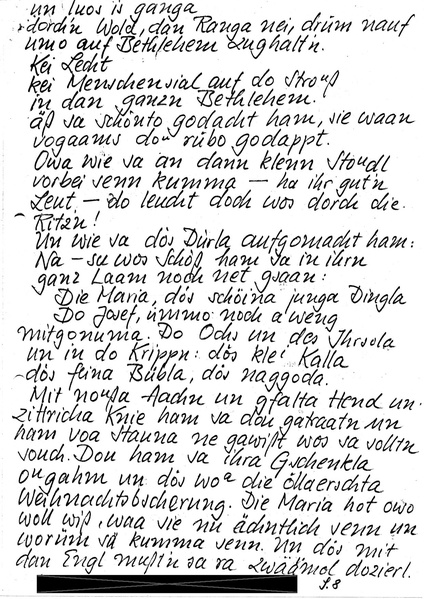 un luos is ganga
dordn Wold, dan Ranga nei, drüm nauf
umo auf Bethlehem zughaltn.
Kei Lecht
kei Menschensial auf do Strouß
in dan ganzn Bethlehem.
äß sa schönto godacht ham, sie waan
vogaams dou rübo godappt.
Owa wie sa an dann klenn Stoudl
vorbei senn kumma — ha ihr gutn
Leut — do leucht doch wos dorch die
Ritzn!
Un wie sa dös Dürla aufgomacht ham:
Na — su wos Schöß ham sa in ihrn
ganz Laam noch net gsaan:
Die Maria, dös schöina junga Dingla
Do Josef, ümmo noch a weng
mitgonumma. Do Ochs un des
un in do Krippn: dös klei Kalla
dös feina Bübla, dös naggoda.
Mit noußa Aachn un gfalta Hend un
zittricha Knie ham sa dou gatraatn un
ham voa Stauna ne gawißt wos sa solltn
souch. Dou ham sa ihra Gschenkla
ougahm un dös woa die öllaerschta
Weihnachtsbscherung. Die Maria hot owo
woll wiß, waa sie nu ächntlich senn un
worüm sa kumma senn. Un dös mit
dan Engl mußtn sa ra zwäämol dozierl.
S. 8